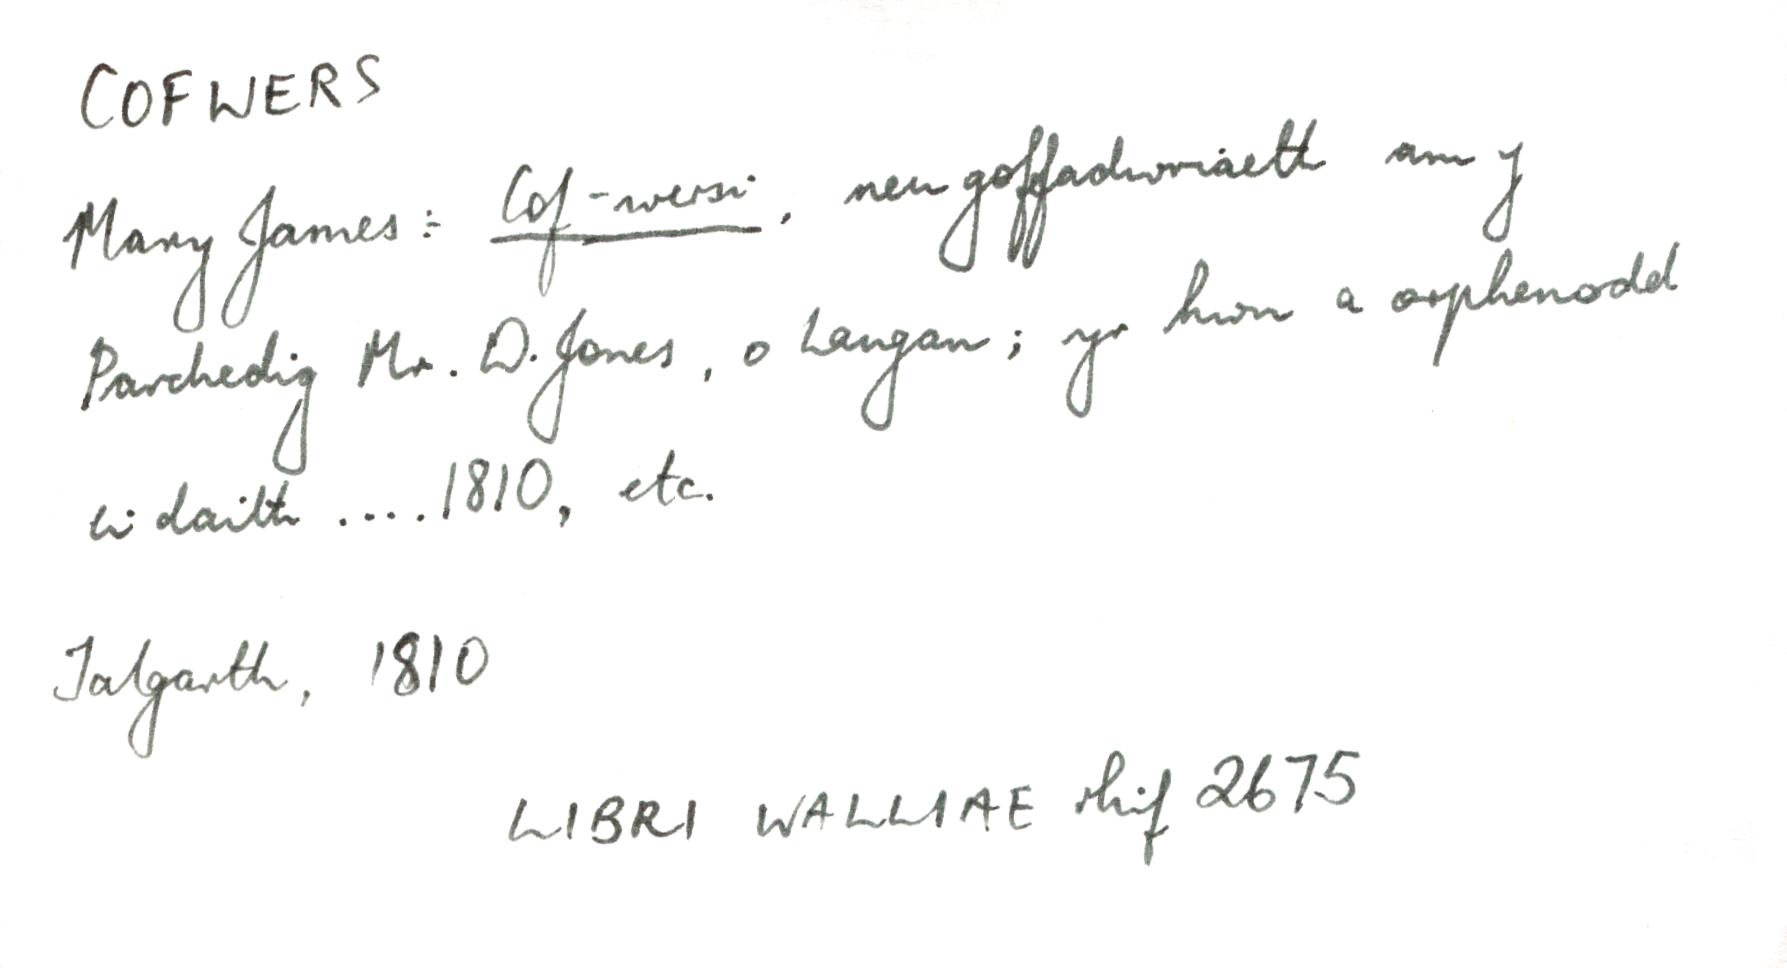 COFWERS
Mary James: Cof-wersi, neu goffadwriaeth am y
Parchedig Mr. D. Jones, o Langan; yr hwn a orphenodd
ei daith .... 1810, etc.
Talgarth, 1810
LIBRI WALLIAE rhif 2675